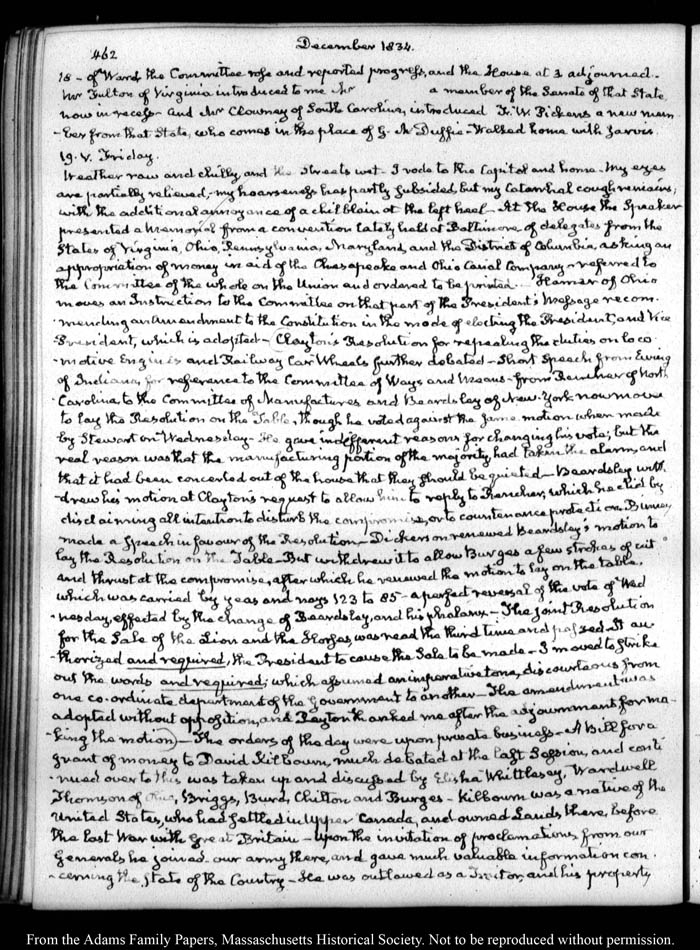 462
December 1834.
18 - of Ward, the Committee rose and reported progress, and the House at 3 adjourned.
Mr Fulton of Virginia introduced to me Mr a member of the Senate of that State
now in recess - and Mr Clowney of South Carolina, introduced F. W. Pickens a new mem
-ber from that State, who comes in the place of G. McDuffie - Walked home with Jarvis.
19. V. Friday.
Weather raw and chilly, and the streets wet - I rode to the Capitol and home - My eyes
are partially relieved, my hoarseness has partly subsided but my Catarrhal cough remains;
with the additional annoyance of a chilblain at the left heel - At the House the Speaker
presented a Memorial from a convention lately held at Baltimore, of delegates from the
States of Virginia, Ohio, Pennsylvania, Maryland, and the District of Columbia, asking an
appropriation of money in aid of the Chesapeake and Ohio Canal Company - referred to
the Committee of the whole on the Union and ordered to be printed. Hamer of Ohio
moves an Instruction to the Committee on that part of the President's Message recom-
-mending an Amendment to the Constitution in the mode of electing the President, and Vice
President, which is adopted - Clayton's Resolution for repealing the duties on loco-
-motive Engines and Railway Car Wheels further debated - Short Speech from Ewing
of Indiana, for reference to the Committee of Ways and Means - from Rencher of North
Carolina to the Committee of Manufactures and Beardsley of New-York now move
to lay the Resolution on the Table, though he voted against the same motion when made
by Stewart on Wednesday - He gave indifferent reasons for changing his vote; but the
real reason was that the manufacturing portion of the majority had taken the alarm, and
that it had been concerted out of the house that they should be quieted - Beardsley with-
-drew his motion at Clayton's request to allow him to reply to Rencher, which he did by
disclaiming all intention to disturb the compromise, or to countenance protection. Binney
made a Speech in favour of the Resolution - Dickerson renewed Beardsley's motion to
lay the Resolution on the Table - But withdrew it to allow Burges a few strokes of cut
and thrust at the compromise, after which he renewed the motion to lay on the table,
which was carried by yeas and nays 123 to 85 - a perfect reversal of the vote of Wed
-nesday, effected by the change of Beardsley, and his phalanx - The joint Resolution
for the Sale of the Lion and the Horses, was read the third time and passed. It au-
-thorized and required, the President to cause the Sale to be made - I moved to strike
out the words and required, which assumed an imperative tone, discourteous from
one co-ordinate department of the Government to another - The amendment was
adopted without opposition, and Peyton thanked me after the adjournment for ma-
-king the motion - The orders of the day were upon private business - A Bill for a
grant of money to David Kilbourn, much debated at the last Session, and conti
-nued over to this was taken up and discussed by Elisha Whittlesey, Wardwell
Thomson of Ohio, Briggs, Burd, Chilton and Burges - Kilbourn was a native of the
United States, who had settled in Upper Canada, and owned Lands there, before
the last War with Great Britain - upon the invitation of proclamations from our
Generals he joined our army there, and gave much valuable information con-
-cerning the State of the Country - He was outlawed as a Traitor, and his property
From the Adams Family Papers, Massachusetts Historical Society. Not to be reproduced without permission.